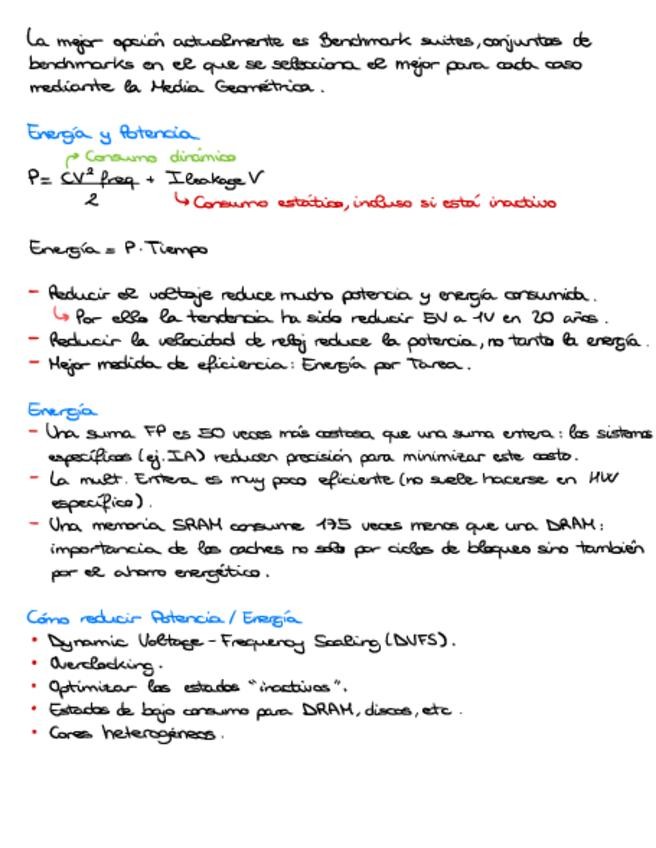 La mejor opción actualmente es Benchmark suites, conjuntos de
benchmarks en el que se selecciona el mejor para cada caso
mediante la Media Geométrica.
Energía y Potencia
Consumo dinámico
P = CV² freq / 2 + Ileakage V
Consumo estático, incluso si está inactivo
Energía = P · Tiempo
- Reducir el voltaje reduce mucho potencia y energía consumida.
Por ello la tendencia ha sido reducir 5V a 1V en 20 años.
- Reducir la velocidad de reloj reduce la potencia, no tanto la energía.
- Mejor medida de eficiencia: Energía por Tarea.
Energía
- Una suma FP es 50 veces más costosa que una suma entera: los sistems
específicos (ej. IA) reducen precisión para minimizar este costo.
- La mult. Entera es muy poco eficiente (no suele hacerse en HW
específico).
- Una memoria SRAM consume 175 veces menos que una DRAM:
importancia de las caches no solo por ciclos de bloqueo sino también
por el ahorro energético.
Cómo reducir Potencia / Energía
• Dynamic Voltage - Frequency Scaling (DVFS).
• Overclocking.
• Optimizar los estados "inactivos".
• Estados de bajo consumo para DRAM, discos, etc.
• Cores heterogéneos.